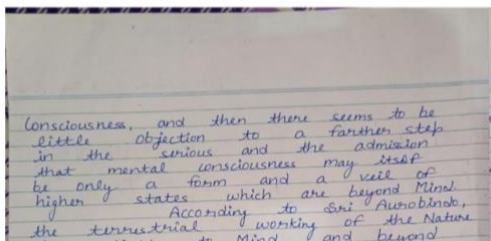 Consciousness, and then there seems to be
little objection to a farther step
in the serious and the admission
that mental consciousness may itself
be only a form and a veil of
higher states which are beyond Mind.
According to Sri Aurobindo,
the terrestrial working of the Nature
to Mind and beyond